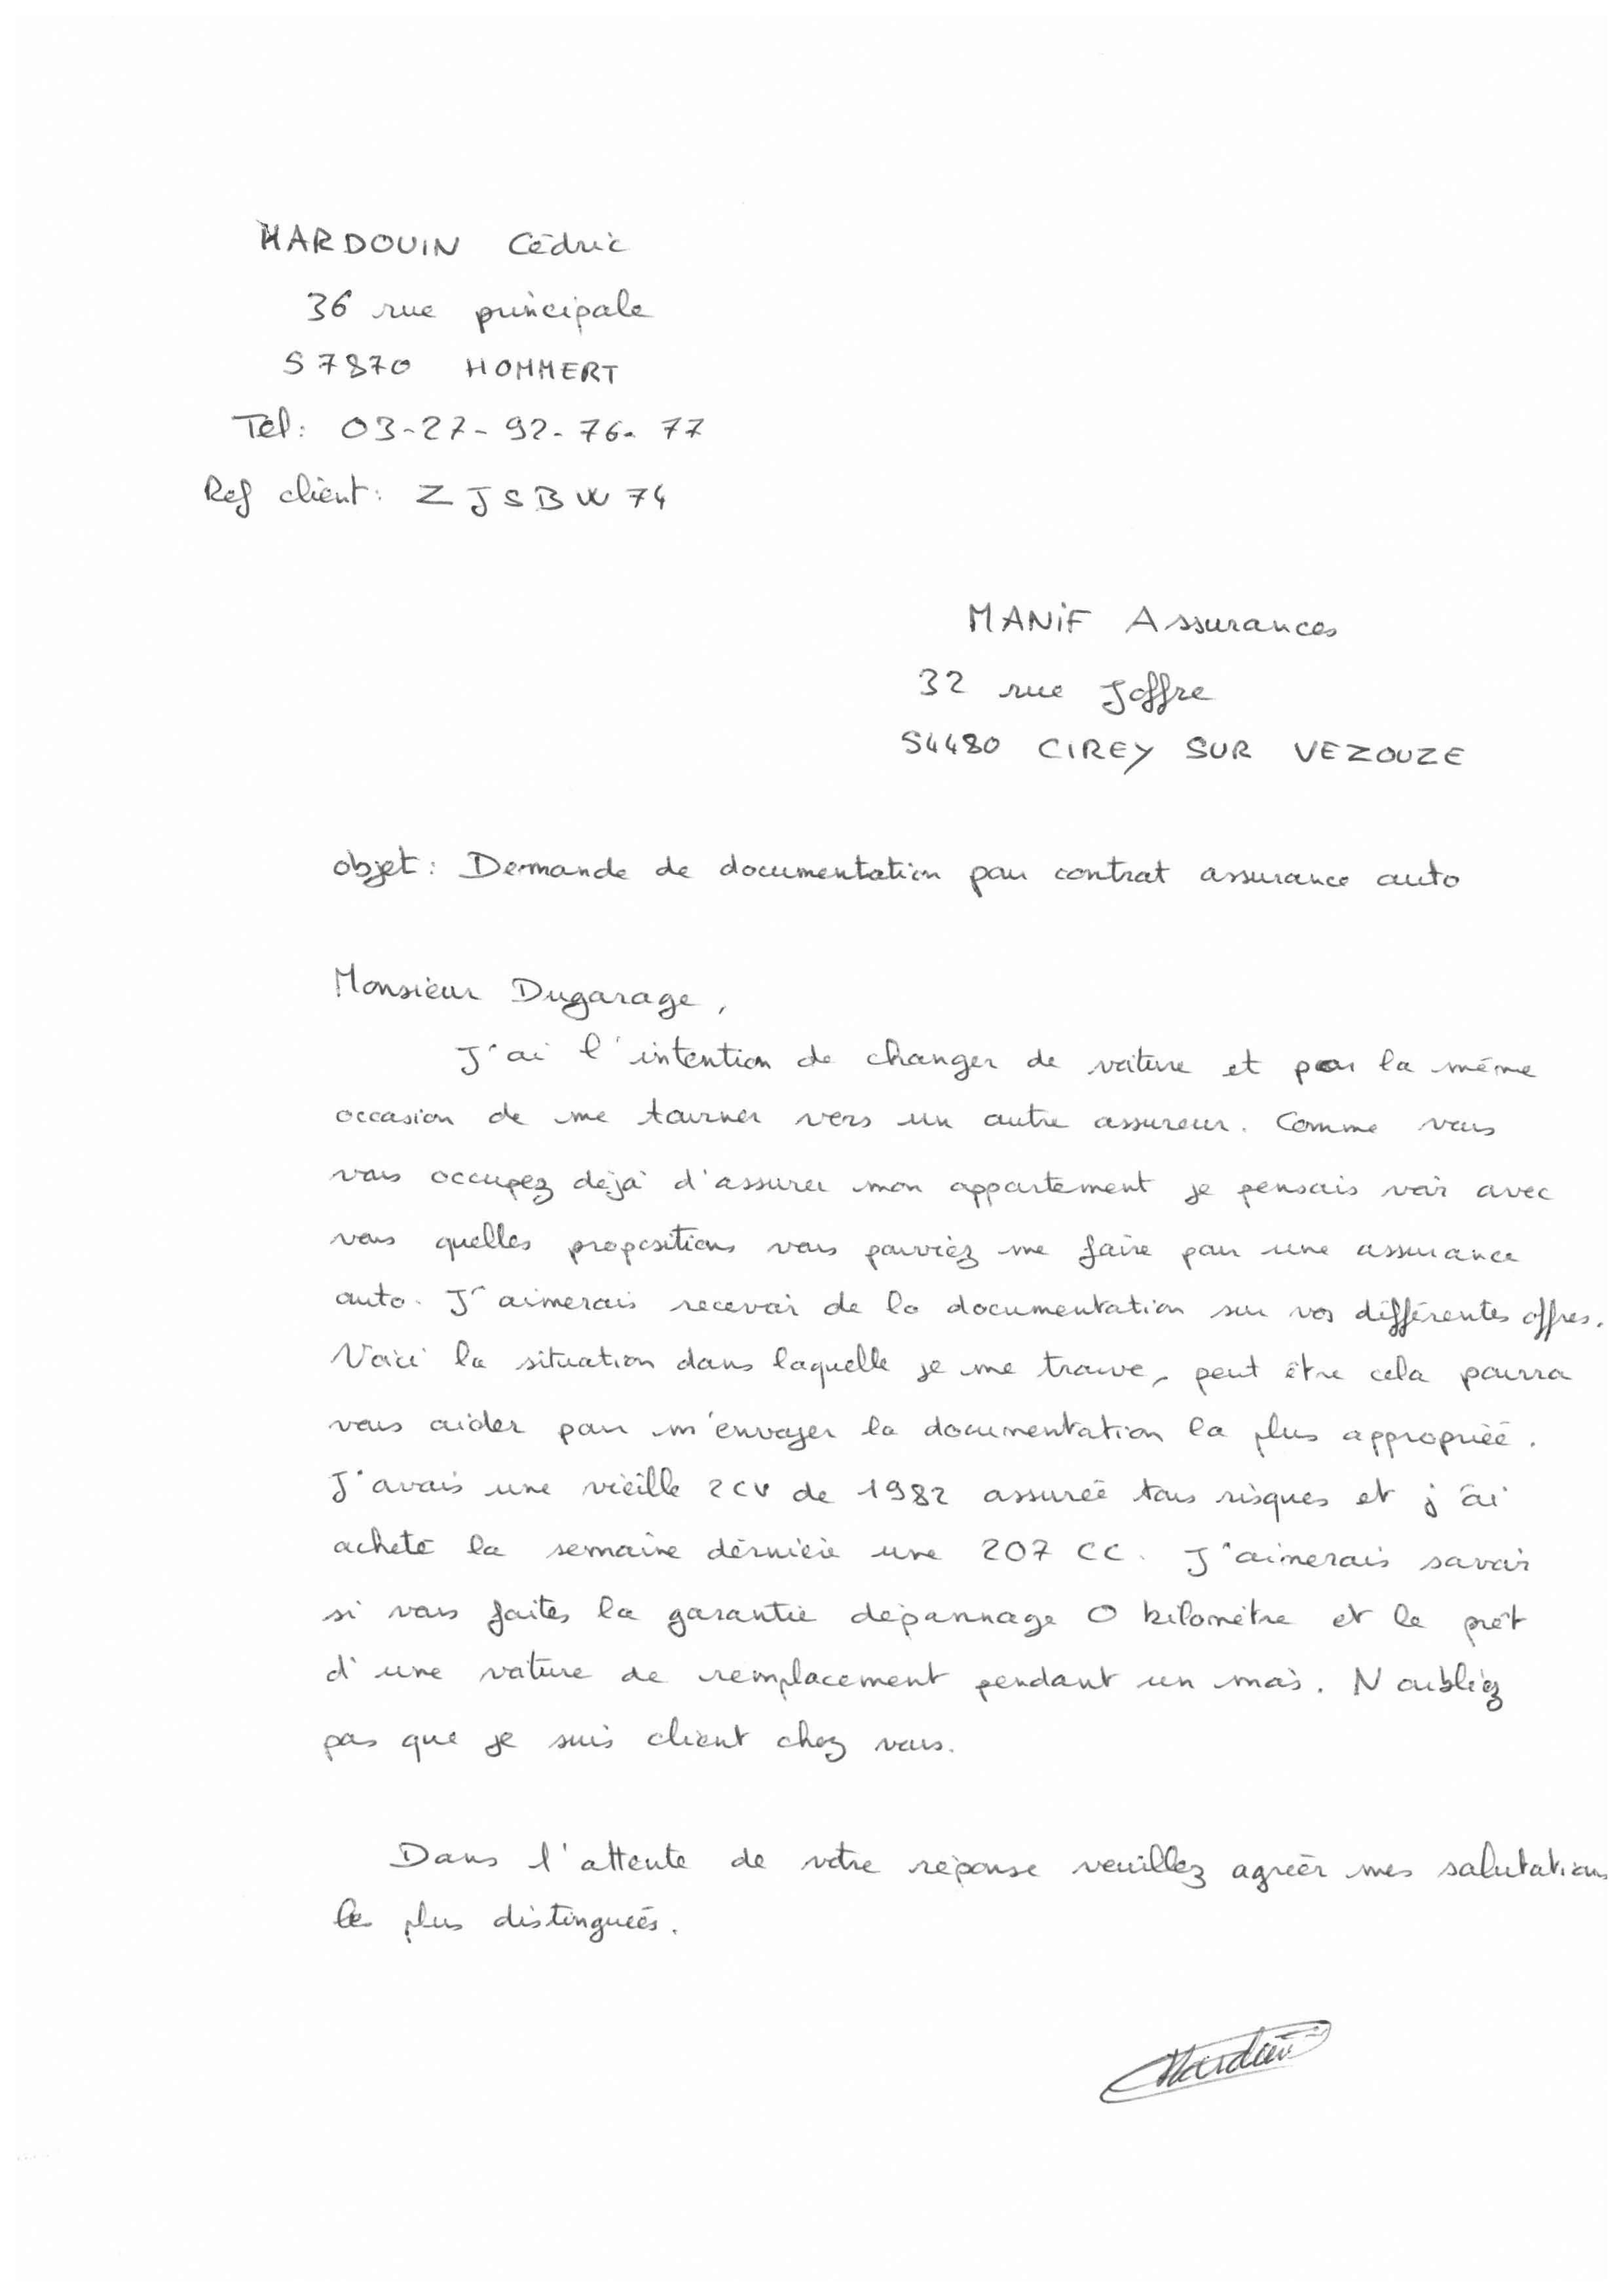 HARDOUIN Cédric
36 rue principale
57870 HOMMERT
Tél: 03-27-92-76-77
Ref client: ZJSBW74
MANIF Assurances
32 rue Joffre
54480 CIREY SUR VEZOUZE
objet: Demande de documentation pour contrat assurance auto
Monsieur Dugarage,
J'ai l'intention de changer de voiture et par la même
occasion de me tourner vers un autre assureur. Comme vous
vous occupez déjà d'assurer mon appartement je pensais voir avec
vous quelles propositions vous pouviez me faire pour une assurance
auto. J'aimerais recevoir de la documentation sur vos différentes offres.
Voici la situation dans laquelle je me trouve, peut être cela pourra
vous aider pour m'envoyer la documentation la plus appropriée.
J'avais une vieille 2CV de 1982 assurée tous risques et j'ai
acheté la semaine dernière une 207 CC. J'aimerais savoir
si vous faites la garantie dépannage 0 kilomètre et le prêt
d'une voiture de remplacement pendant un mois. N'oubliez
pas que je suis client chez vous.
Dans l'attente de votre réponse veuillez agréer mes salutations
les plus distinguées.